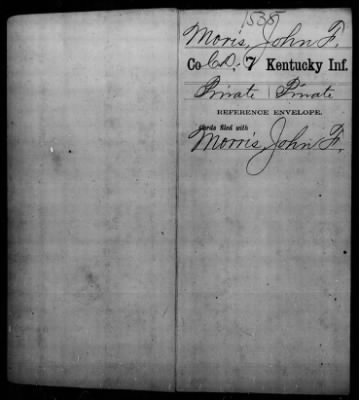 1535
Moris, John F.
Co D, 7 Kentucky Inf.
Private | Private
REFERENCE ENVELOPE.
Cards filed with
Morris, John F.